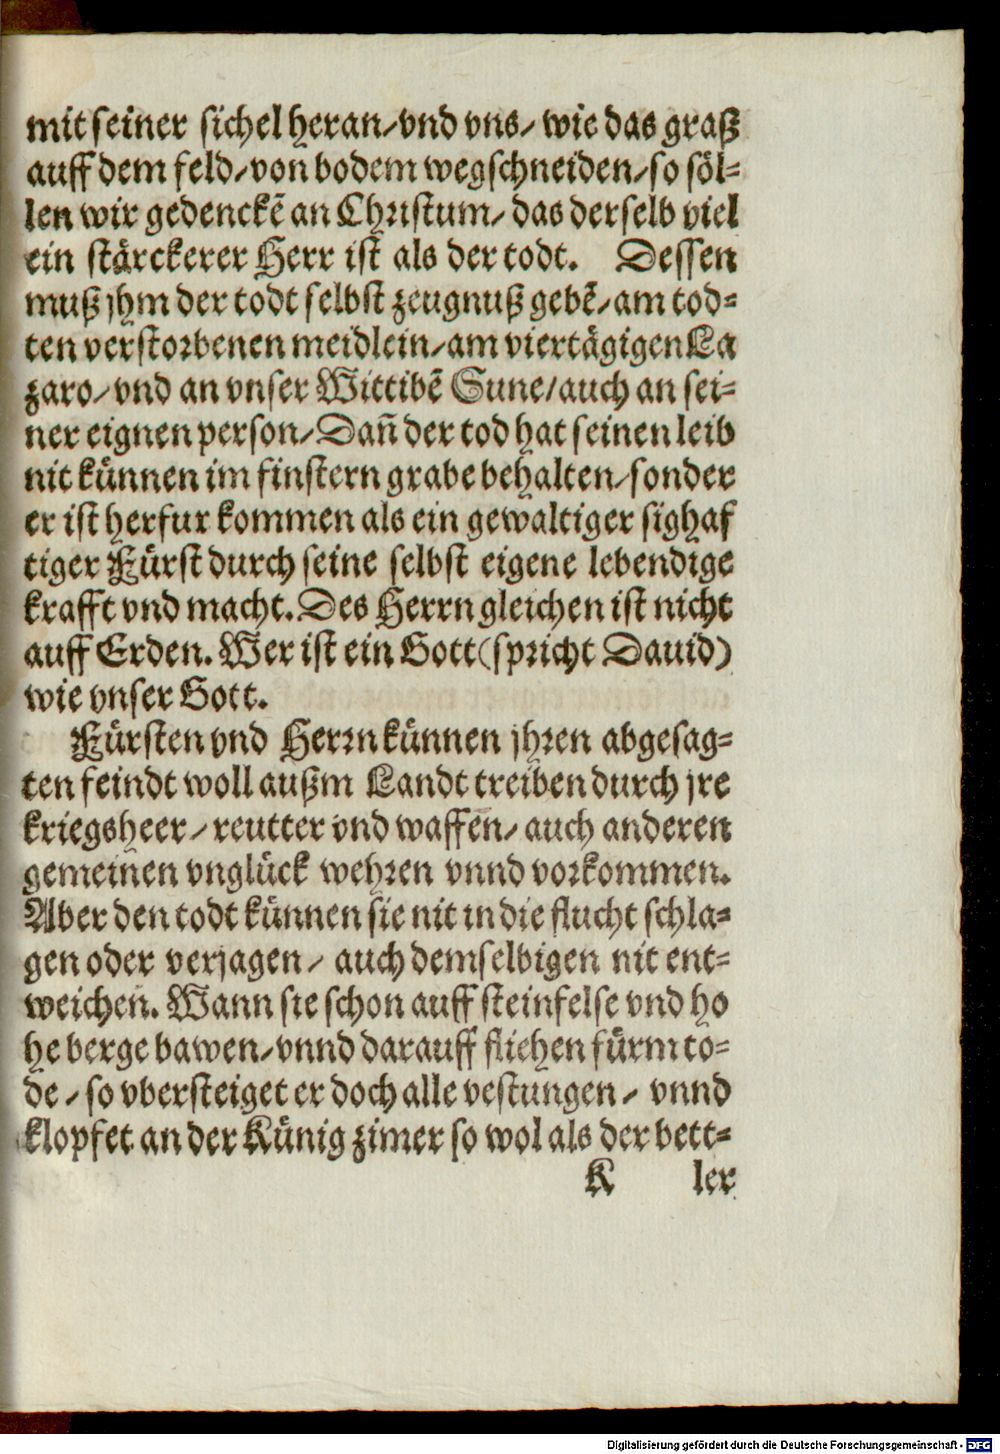 mit seiner sichel heran/vnd vns/ wie das graß
auff dem feld/von bodem wegschneiden/so söl-
len wir gedenckē an Christum/ das derselb viel
ein stärckerer Herr ist als der todt. Dessen
muß jhm der todt selbst zeugnuß gebē/am tod-
ten verstorbenen meidlein/am viertägigen La
zaro/vnd an vnser Wittibē Sune/auch an sei-
ner eignen person/Dañ der tod hat seinen leib
nit künnen im finstern grabe behalten/sonder
er ist herfur kommen als ein gewaltiger sighaf
tiger Fürst durch seine selbst eigene lebendige
krafft vnd macht. Des Herrn gleichen ist nicht
auff Erden. Wer ist ein Gott (spricht Dauid)
wie vnser Gott.
Fürsten vnd Herrn künnen jhren abgesag-
ten feindt woll außm Landt treiben durch jre
kriegsheer/ reutter vnd waffen/ auch anderen
gemeinen vnglück wehren vnnd vorkommen.
Aber den todt künnen sie nit in die flucht schla-
gen oder verjagen/ auch demselbigen nit ent-
weichen. Wann sie schon auff steinfelse vnd ho
he berge bawen/vnnd darauff fliehen fürm to-
de/ so vbersteiget er doch alle vestungen/ vnnd
klopfet an der Künig zimer so wol als der bett-
K ler
Digitalisierung gefördert durch die Deutsche Forschungsgemeinschaft - DFG